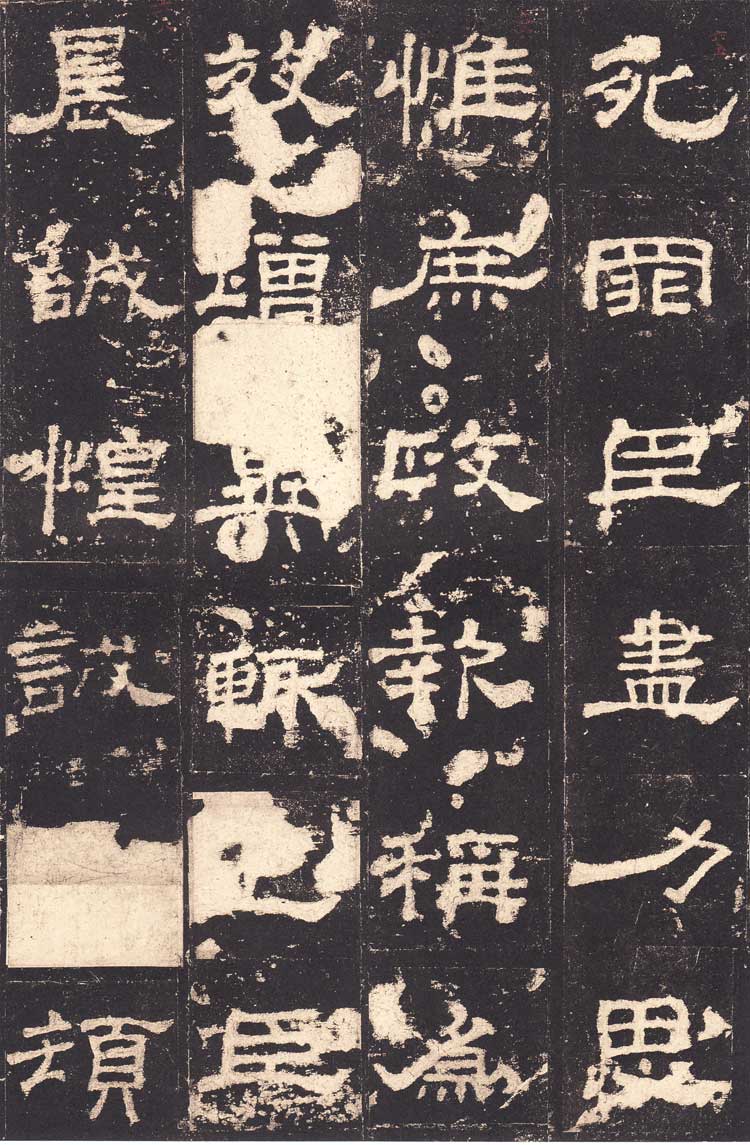 死罪臣盡力思
惟庶政報稱為
效增異輒上臣
晨誠惶誠頓